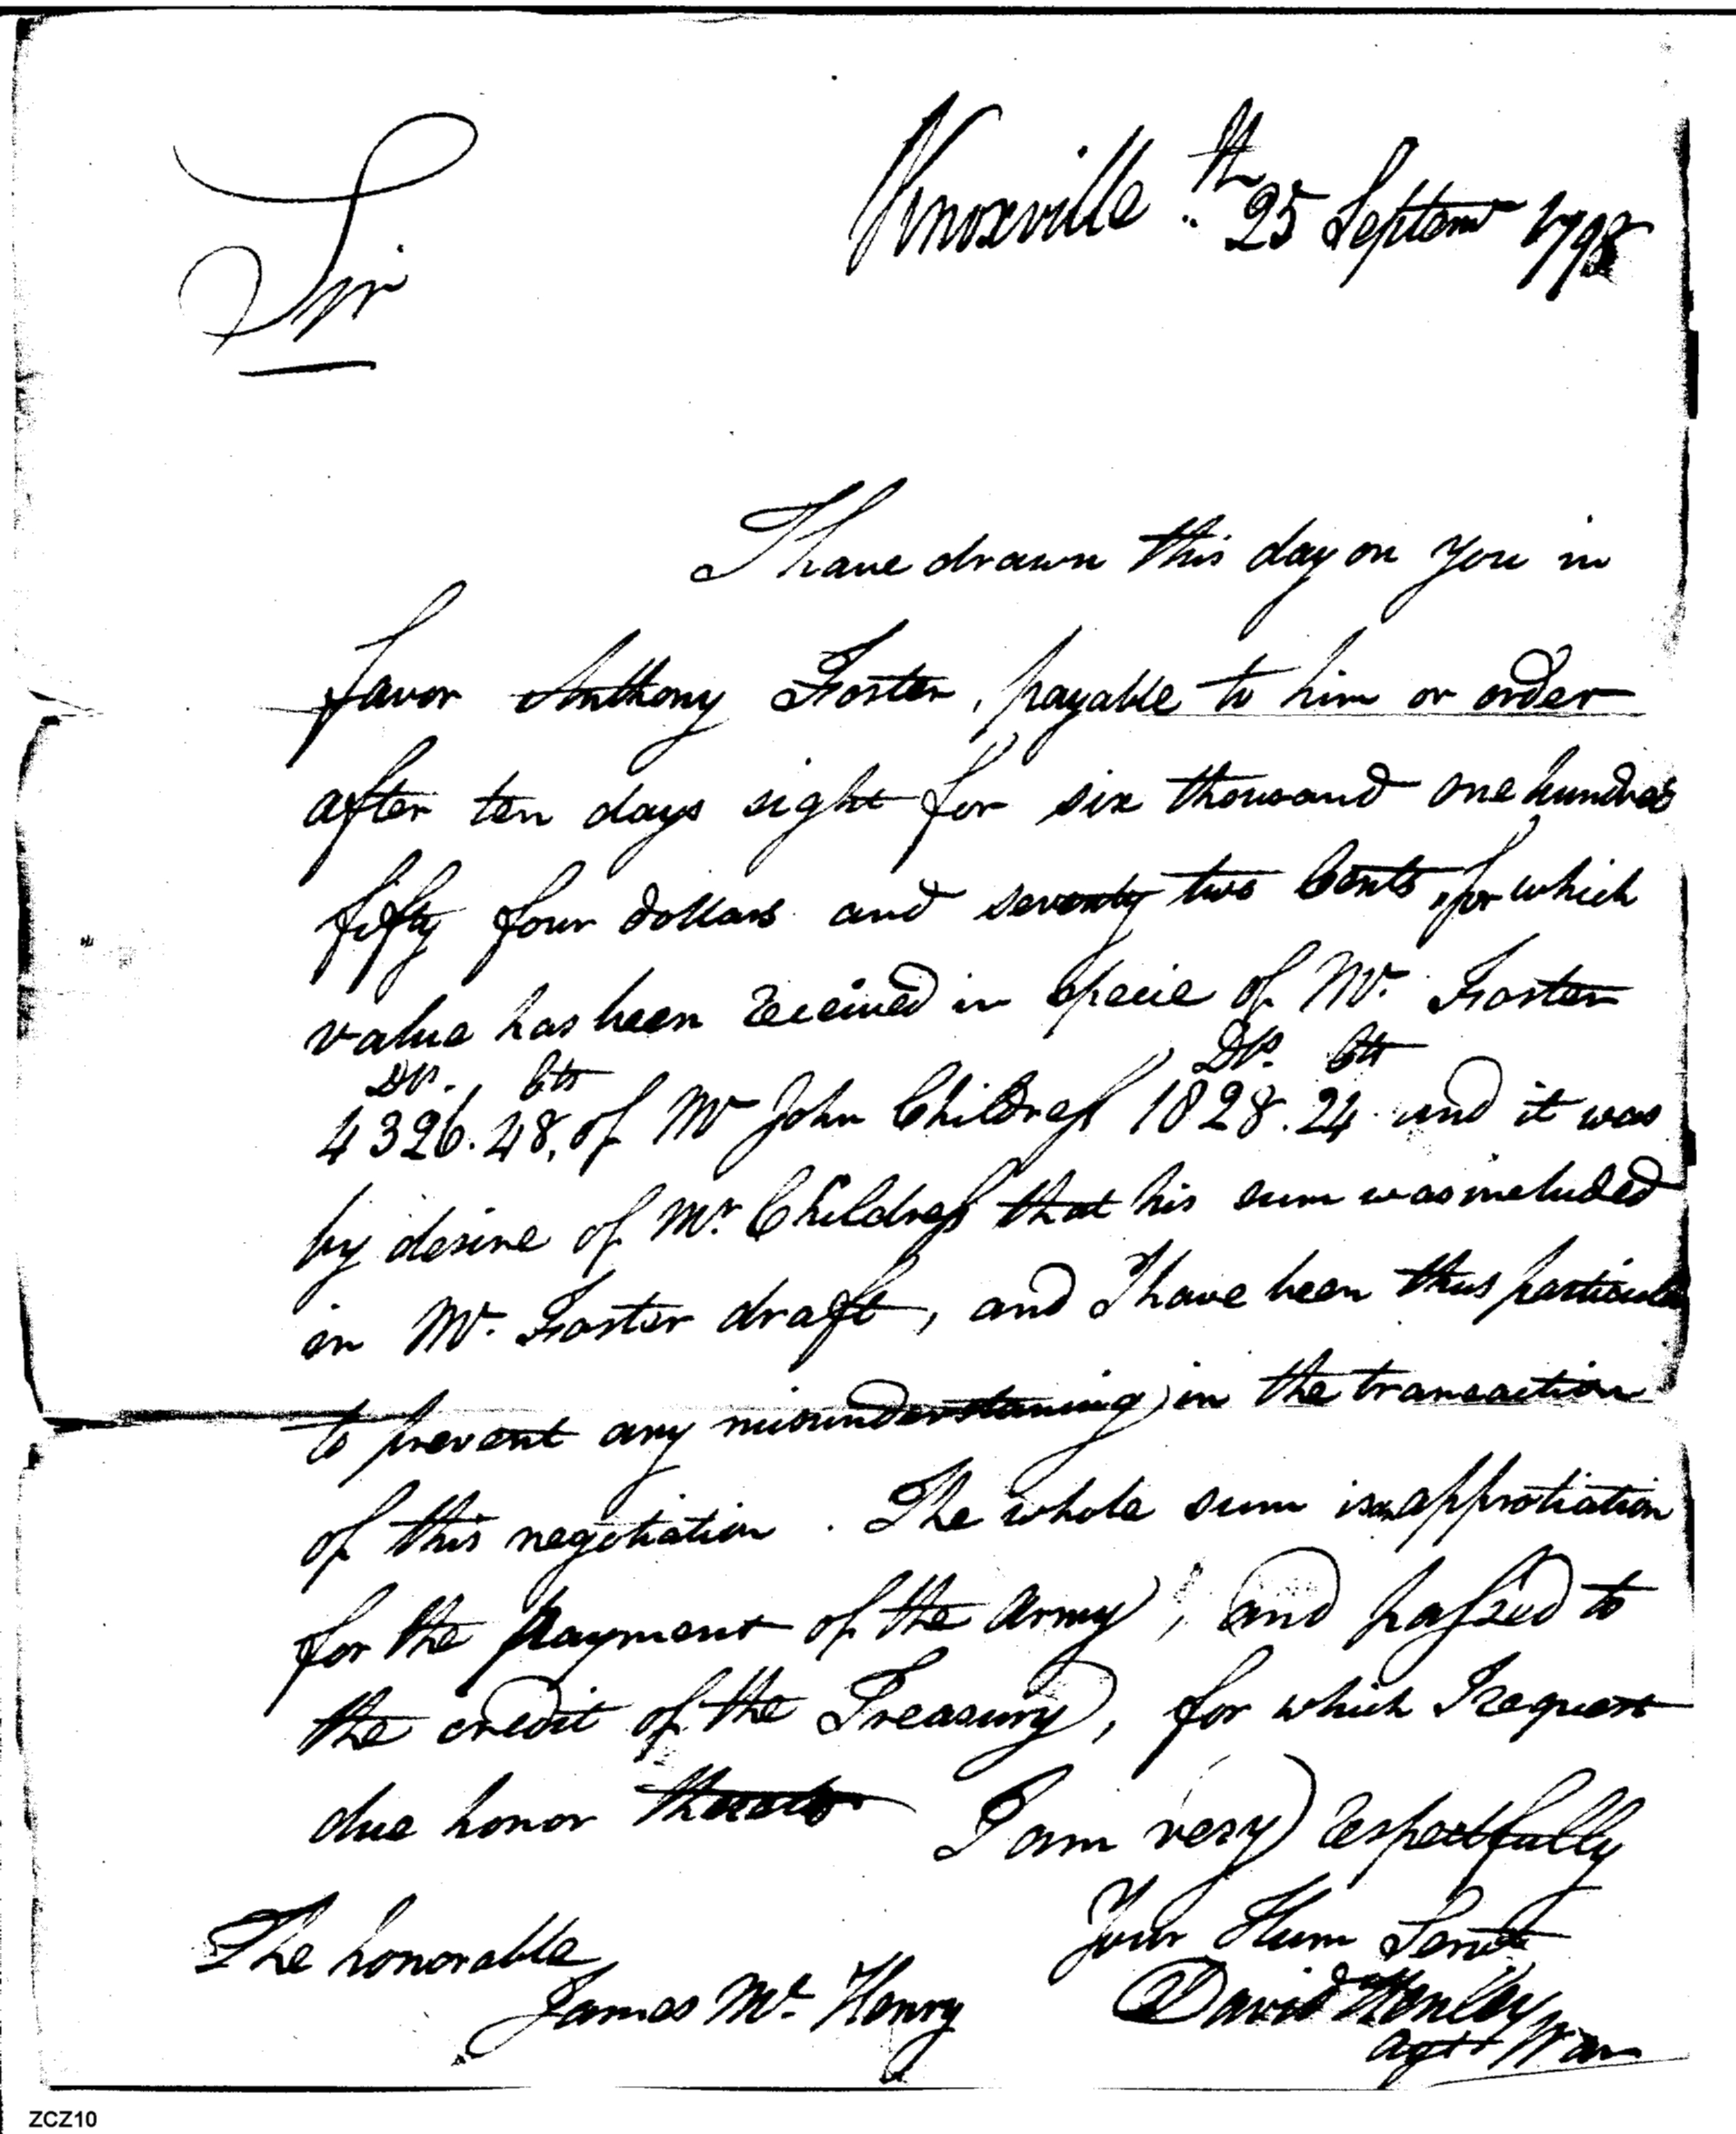 Knoxville th 25 Septemr 1798
Sir
I have drawn this day on you in
favor Anthony Foster, payable to him or order
after ten days sight for six thousand one hundred
fifty four dollars and seventy two Cents, for which
value has been received in specie of Mr. Foster
Drs. Cts Drs. Cts
4326.48, of Mr John Childress 1828.24 and it was
by desire of Mr. Childress that his sum was included
in Mr. Foster draft, and I have been thus particular
to prevent any misunderstaning in the transaction
of this negotiation. The whole sum is an approtiation
for the payment of the army, and passed to
the credit of the Treasury, for which I request
due honor thereto I am very respectfully
Your Hum Servt
The honorable
James Mc. Henry David Henley
agt War
ZCZ10